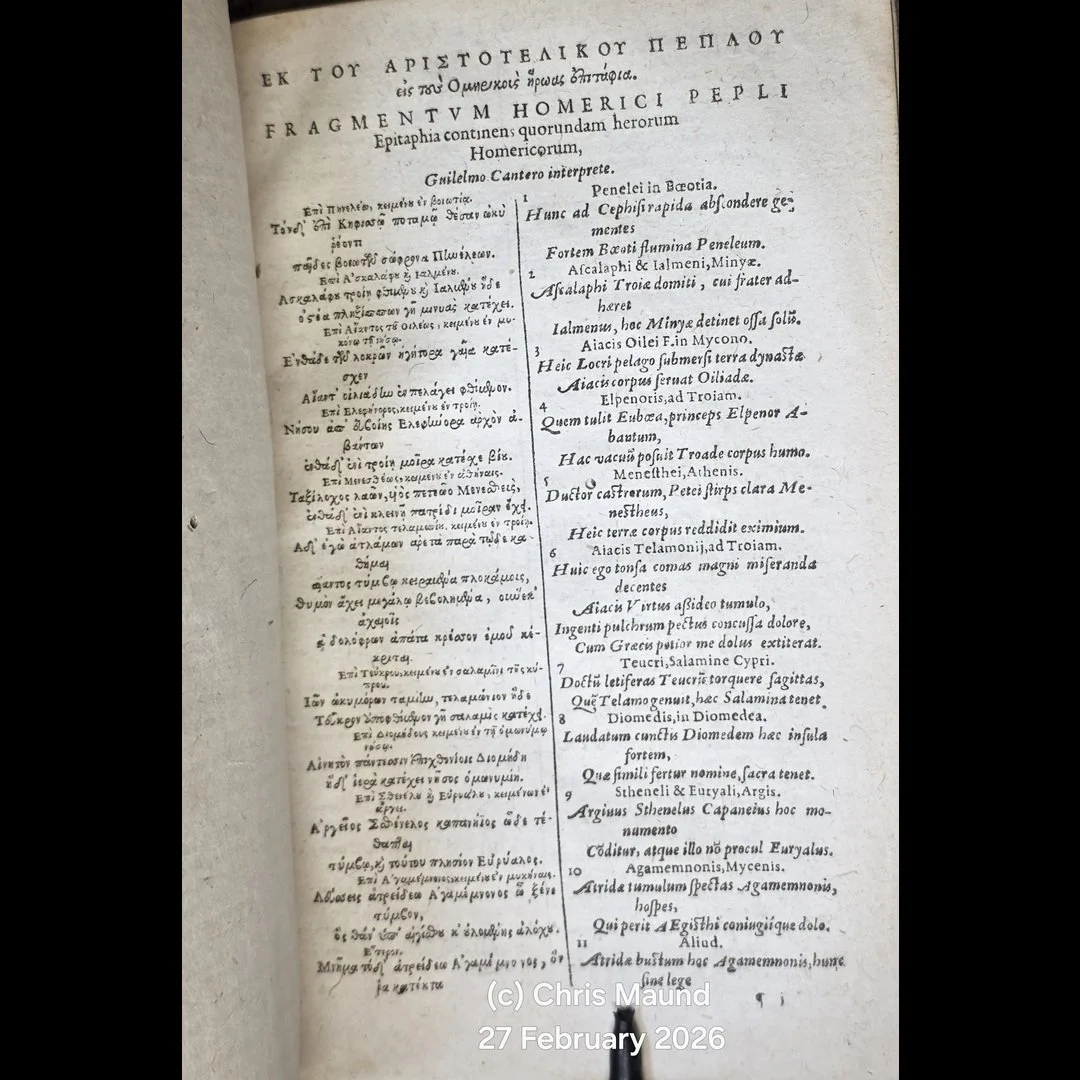 ΕΚ ΤΟΥ ΑΡΙΣΤΟΤΕΛΙΚΟΥ ΠΕΠΛΟΥ
εἰς τοὺς Ὁμηρικοὺς ἥρωας ἐπιτάφια.
FRAGMENTVM HOMERICI PEPLI
Epitaphia continens quorundam herorum
Homericorum,
Guilelmo Cantero interprete.
Ἐπὶ Πηνελέῳ, κειμένῳ ἐν βοιωτίᾳ.
Τόνδ' ἐπὶ Κηφισσῷ ποταμῷ θέσαν ὠκὺ
ῥέοντι
παῖδες βοιωτῶν σώφρονα Πηνέλεων.
Ἐπὶ Ἀσκαλάφου καὶ Ἰαλμένου.
Ἀσκαλάφου τροίῃ φθιμένου καὶ Ἰαλμένου ἥδε
ὀστέα πληξίππων γῆ μινυὰς κατέχει.
Ἐπὶ Αἴαντος τοῦ Οϊλέως, κειμένου ἐν μυ-
κόνῳ τῇ νήσῳ.
Ἐνθάδε τὸν λοκρῶν ἡγήτορα γαῖα κατέ-
σχεν
Αἴαντ' οἰλιάδην ἐν πελάγει φθίμενον.
Ἐπὶ Ἐλεφήνορος, κειμένου ἐν τροίῃ.
Νήσου ἀπ' εὐβοίης Ἐλεφήνορα ἀρχὸν ἀ-
βάντων
ἐνθάδ' ἐνὶ τροίῃ μοῖρα κατέσχε βίου.
Ἐπὶ Μενεσθέως, κειμένου ἐν ἀθήναις.
Ταξίλοχος λαῶν, υἱὸς πετεῶο Μενεσθεὺς,
ἐνθάδ' ἐνὶ κλεινῇ πατρίδι μοῖραν ἔχει.
Ἐπὶ Αἴαντος τελαμωνίου, κειμένου ἐν τροίῃ.
Ἅδ' ἐγὼ ἁ τλάμων ἀρετὰ παρὰ τῷδε κά-
θημαι
αἴαντος τύμβῳ κειραμένα πλοκάμοις,
θυμὸν ἄχει μεγάλῳ βεβολημένα, οὕνεκ'
ἀχαιοῖς
ἁ δολόφρων ἀπάτα κρέσσον ἐμοῦ κέ-
κριται.
Ἐπὶ Τεύκρου, κειμένου ἐν σαλαμῖνι τῆς κύ-
πρου.
Ἰῶν ὠκυμόρων ταμίην, τελαμώνιον ἥδε
Τεῦκρον ἀποφθίμενον γῆ σαλαμὶς κατέχει.
Ἐπὶ Διομήδους κειμένου ἐν τῇ ὁμωνύμῳ
νήσῳ.
Αἰνητὸν πάντεσσιν ἐπιχθονίοις Διομήδη
ἥδ' ἱερὰ κατέχει νῆσος ὁμωνυμίη.
Ἐπὶ Σθενέλου καὶ Εὐρυάλου, κειμένων ἐν
ἄργει.
Ἀργεῖος Σθένελος καπανήιος ὧδε τέ-
θαπται
τύμβῳ, καὶ τούτου πλησίον Εὐρύαλος.
Ἐπὶ Ἀγαμέμνονος, κειμένου ἐν μυκήναις.
Λεύσσεις ἀτρείδεω Ἀγαμέμνονος ὦ ξένε
τύμβον,
ὃς θάν' ὑπ' αἰγίσθου κ' οὐλομένης ἀλόχου.
Ἕτερον.
Μνῆμα τόδ' ἀτρείδεω Ἀγαμέμνονος, ὅν
ῥα κατέκτα
1
Penelei in Bœotia.
Hunc ad Cephisi rapida abscondere ge-
mentes
Fortem Bœoti flumina Peneleum.
2 Ascalaphi & Ialmeni, Minyæ.
Ascalaphi Troiæ domiti, cui frater ad-
hæret
Ialmenus, hoc Minyæ detinet ossa solũ.
3 Aiacis Oilei F. in Mycono.
Heic Locri pelago submersi terra dynastæ
Aiacis corpus seruat Oiliadæ.
4 Elpenoris, ad Troiam.
Quem tulit Eubœa, princeps Elpenor A-
bantum,
Hac vacuũ posuit Troade corpus humo.
5 Menesthei, Athenis.
Ductor castrorum, Petei stirps clara Me-
nestheus,
Heic terræ corpus reddidit eximium.
6 Aiacis Telamonij, ad Troiam.
Huic ego tonsa comas magni miseranda
decentes
Aiacis Virtus assideo tumulo,
Ingenti pulchrum pectus concussa dolore,
Cum Græcis potior me dolus extiterat.
7 Teucri, Salamine Cypri.
Doctũ letiferas Teucrũ torquere sagittas,
Quẽ Telamo genuit, hæc Salamina tenet.
8 Diomedis, in Diomedea.
Laudatum cunctis Diomedem hæc insula
fortem,
Quæ simili fertur nomine, sacra tenet.
9 Stheneli & Euryali, Argis.
Argiuus Sthenelus Capaneius hoc mo-
numento
Cõditur, atque illo nõ procul Euryalus.
10 Agamemnonis, Mycenis.
Atridæ tumulum spectas Agamemnonis,
hospes,
Qui perit AEgisthi coniugiíque dolo.
11 Aliud.
Atridæ bustum hoc Agamemnonis, hunc
sine lege
¶ j
(c) Chris Maund
27 February 2026